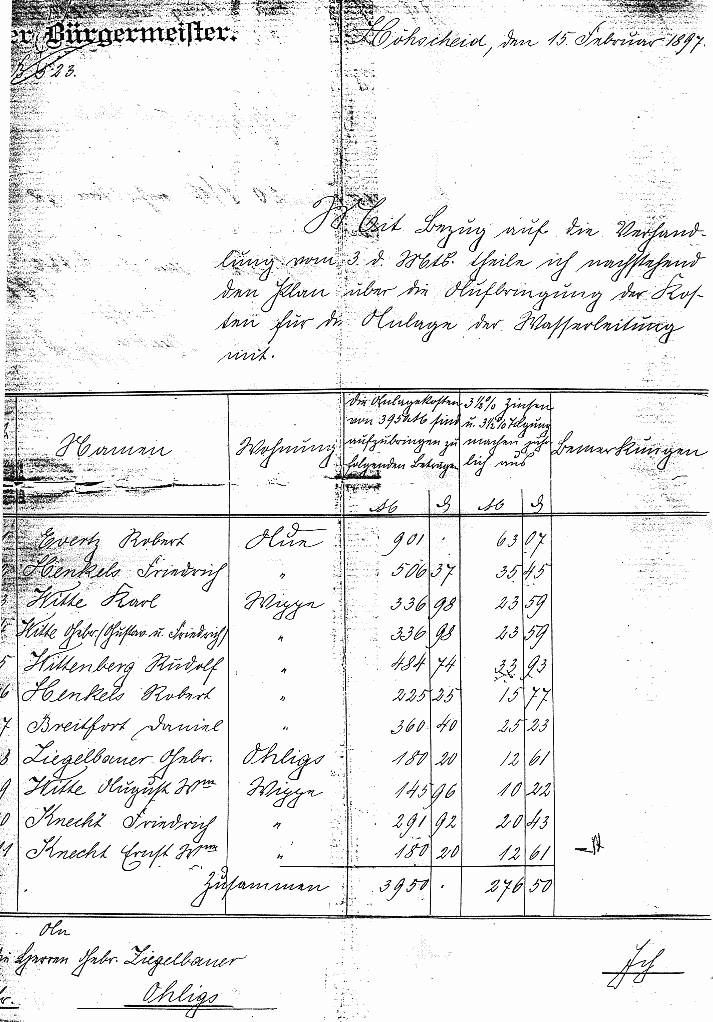 er Bürgermeister.
Höhscheid, den 15. Februar 1897.
523.
Mit Bezug auf die Verhand-
lung vom 3. d. Mts. theile ich nachstehend
den Plan über die Aufbringung der Kos-
ten für die Anlage der Wasserleitung
mit.
Namen Wohnung Die Anlagekosten von 3950 M sind aufzubringen zu folgenden Beträgen 3½% Zinsen u. 3½% Tilgung machen jähr- lich aus Bemerkungen
M ₰ M ₰
Evertz Robert Aue 901 . 63 07
Henkels Friedrich " 506 37 35 45
Witte Karl Wippe 336 98 23 59
Witte Gebr. (Gustav u. Friedrich) " 336 98 23 59
5 Wittenberg Rudolf " 484 74 33 93
6 Henkels Robert " 225 25 15 77
7 Breitfort Daniel " 360 40 25 23
8 Ziegelbauer Gebr. Ohligs 180 20 12 61
9 Witte August Wm Wippe 145 96 10 22
0 Knecht Friedrich " 291 92 20 43
1 Knecht Ernst Wm " 180 20 12 61
Zusammen 3950 . 276 50
An
die Herren Gebr. Ziegelbauer
Ohligs
Ich